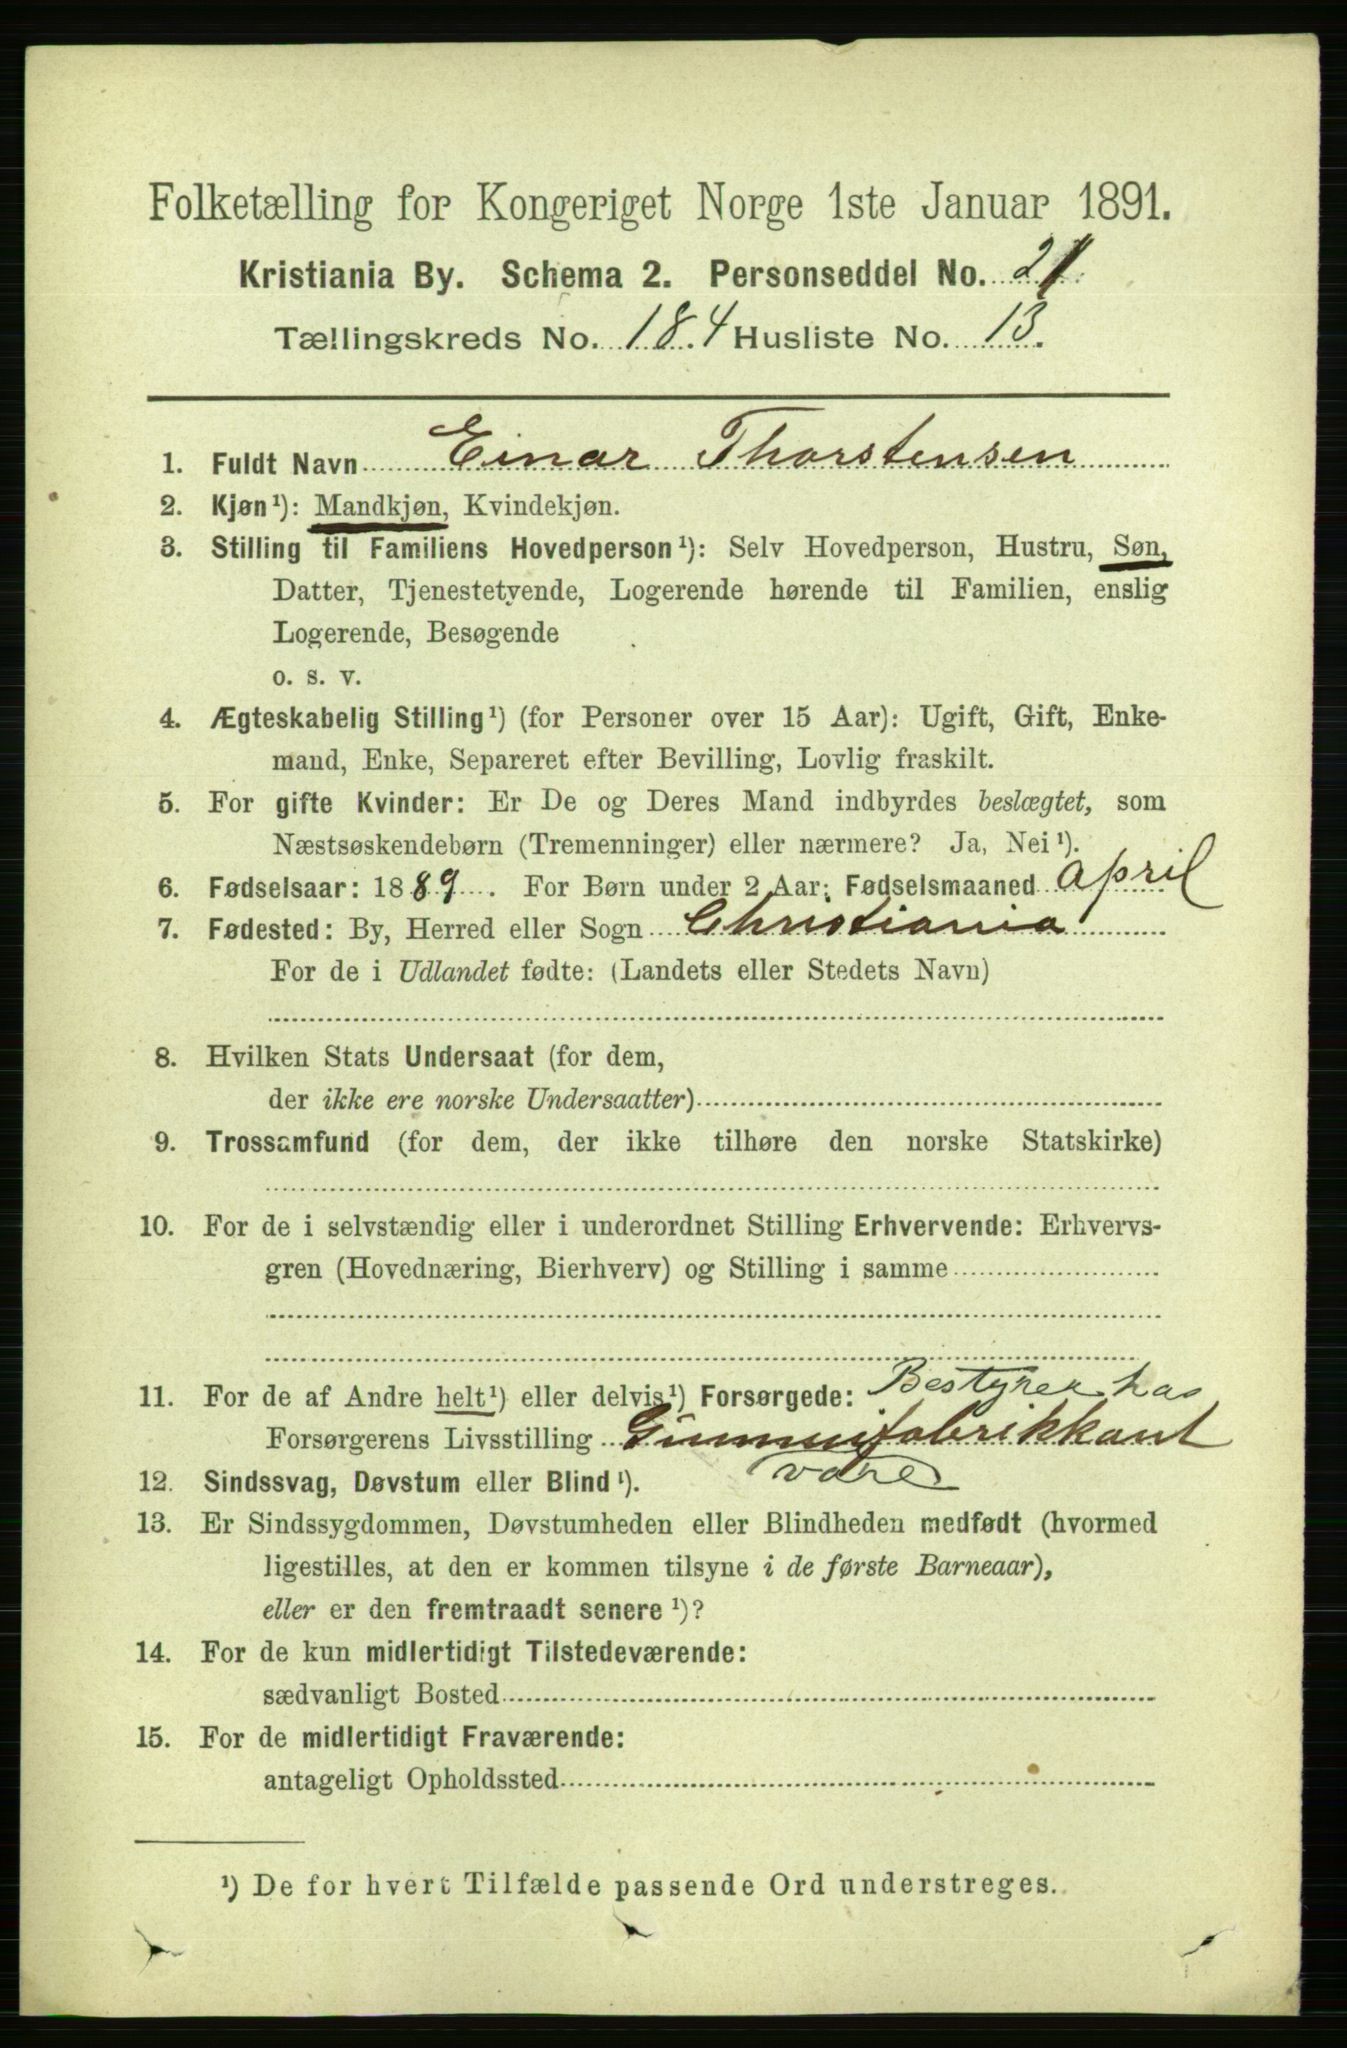 Folketælling for Kongeriget Norge 1ste Januar 1891.
Kristiania By. Schema 2. Personseddel No. 21
Tællingskreds No. 184 Husliste No. 13.
1. Fuldt Navn Einar Thorstensen
2. Kjøn¹): Mandkjøn, Kvindekjøn.
3. Stilling til Familiens Hovedperson¹): Selv Hovedperson, Hustru, Søn,
Datter, Tjenestetyende, Logerende hørende til Familien, enslig
Logerende, Besøgende
o. s. v.
4. Ægteskabelig Stilling¹) (for Personer over 15 Aar): Ugift, Gift, Enke-
mand, Enke, Separeret efter Bevilling, Lovlig fraskilt.
5. For gifte Kvinder: Er De og Deres Mand indbyrdes beslægtet, som
Næstsøskendebørn (Tremenninger) eller nærmere? Ja, Nei¹).
6. Fødselsaar: 1889. For Børn under 2 Aar: Fødselsmaaned April
7. Fødested: By, Herred eller Sogn Christiania
For de i Udlandet fødte: (Landets eller Stedets Navn)
8. Hvilken Stats Undersaat (for dem,
der ikke ere norske Undersaatter)
9. Trossamfund (for dem, der ikke tilhøre den norske Statskirke)
10. For de i selvstændig eller i underordnet Stilling Erhvervende: Erhvervs-
gren (Hovednæring, Bierhverv) og Stilling i samme
11. For de af Andre helt¹) eller delvis¹) Forsørgede: Bestyrer hos
Forsørgerens Livsstilling Gummifabrikkant
vare
12. Sindssvag, Døvstum eller Blind¹).
13. Er Sindssygdommen, Døvstumheden eller Blindheden medfødt (hvormed
ligestilles, at den er kommen tilsyne i de første Barneaar),
eller er den fremtraadt senere¹)?
14. For de kun midlertidigt Tilstedeværende:
sædvanligt Bosted
15. For de midlertidigt Fraværende:
antageligt Opholdssted
¹) De for hvert Tilfælde passende Ord understreges.